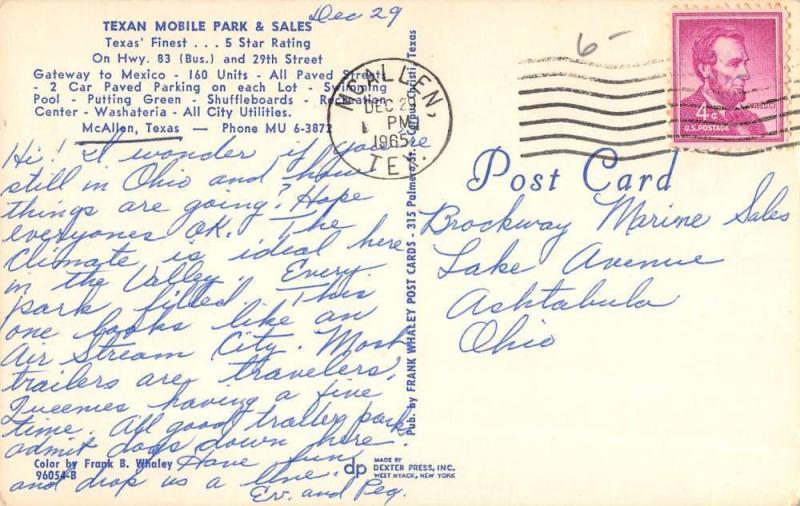 Dec 29
TEXAN MOBILE PARK & SALES
Texas' Finest . . . 5 Star Rating
On Hwy. 83 (Bus.) and 29th Street
Gateway to Mexico - 160 Units - All Paved Streets
- 2 Car Paved Parking on each Lot - Swimming
Pool - Putting Green - Shuffleboards - Recreation
Center - Washateria - All City Utilities.
McAllen, Texas — Phone MU 6-3872
Hi! I wonder if you're
still in Ohio and how
things are going? Hope
everyones OK. The
Climate is ideal here
in the Valley. Every
park filled. This
one looks like an
Air Stream City. Most
trailers are travelers,
Queenies having a fine
time. All good trailer parks
admit dogs down here.
Have fun
and drop us a line.
Ev. and Peg.
Color by Frank B. Whaley
96054-B
Pub. by FRANK WHALEY POST CARDS - 315 Palmero St. Corpus Christi, Texas
dp
MADE BY
DEXTER PRESS, INC.
WEST NYACK, NEW YORK
McALLEN,
DEC 29
PM
1965
TEX.
6-
4¢
U.S. POSTAGE
Post Card
Brockway Marine Sales
Lake Avenue
Ashtabula
Ohio